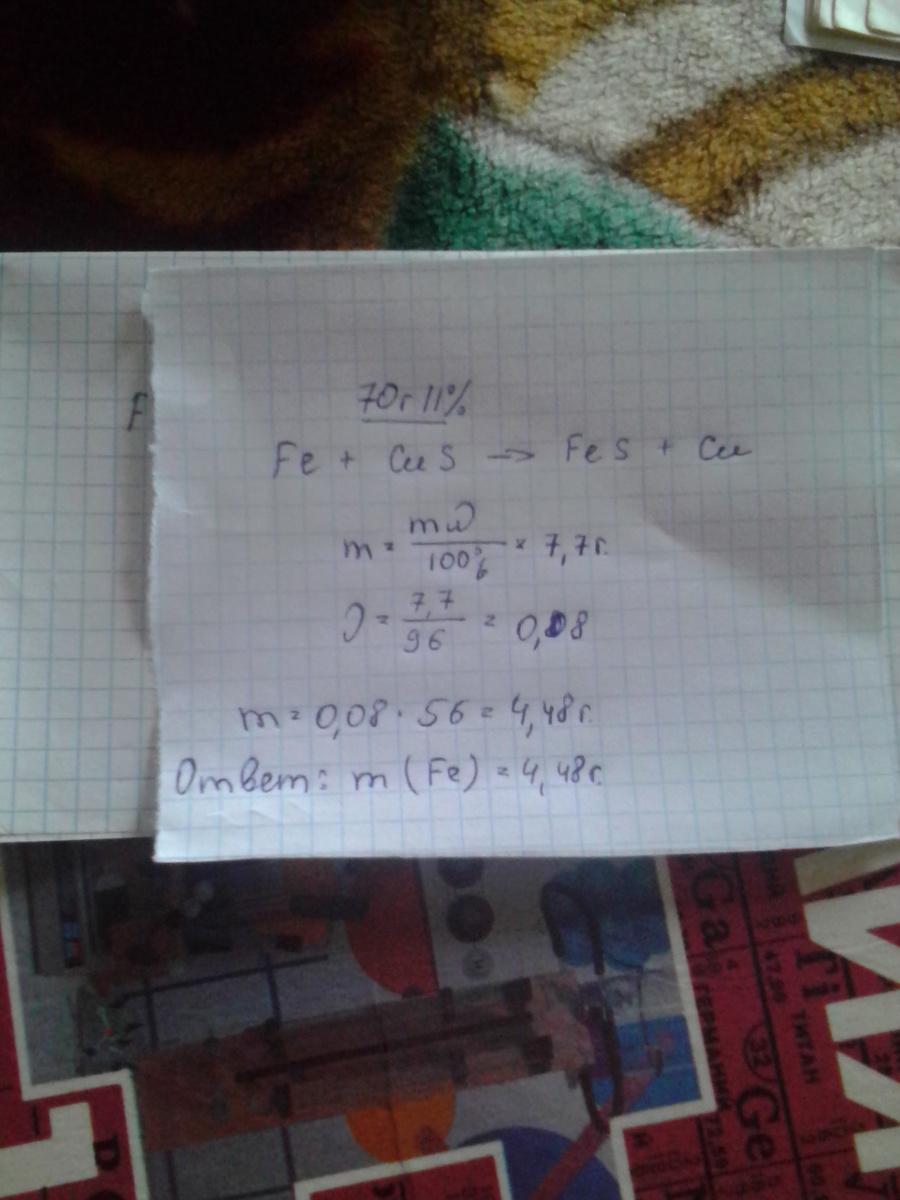 F
70г 11%
Fe + CuS → FeS + Cu
m = mω / 100% = 7,7г.
ν = 7,7 / 96 = 0,08
m = 0,08 · 56 = 4,48г.
Ответ: m (Fe) = 4,48г.
Ga
ГЕРМАНИЙ
72,59
32
Ge
47,90
ТИТАН
Ti